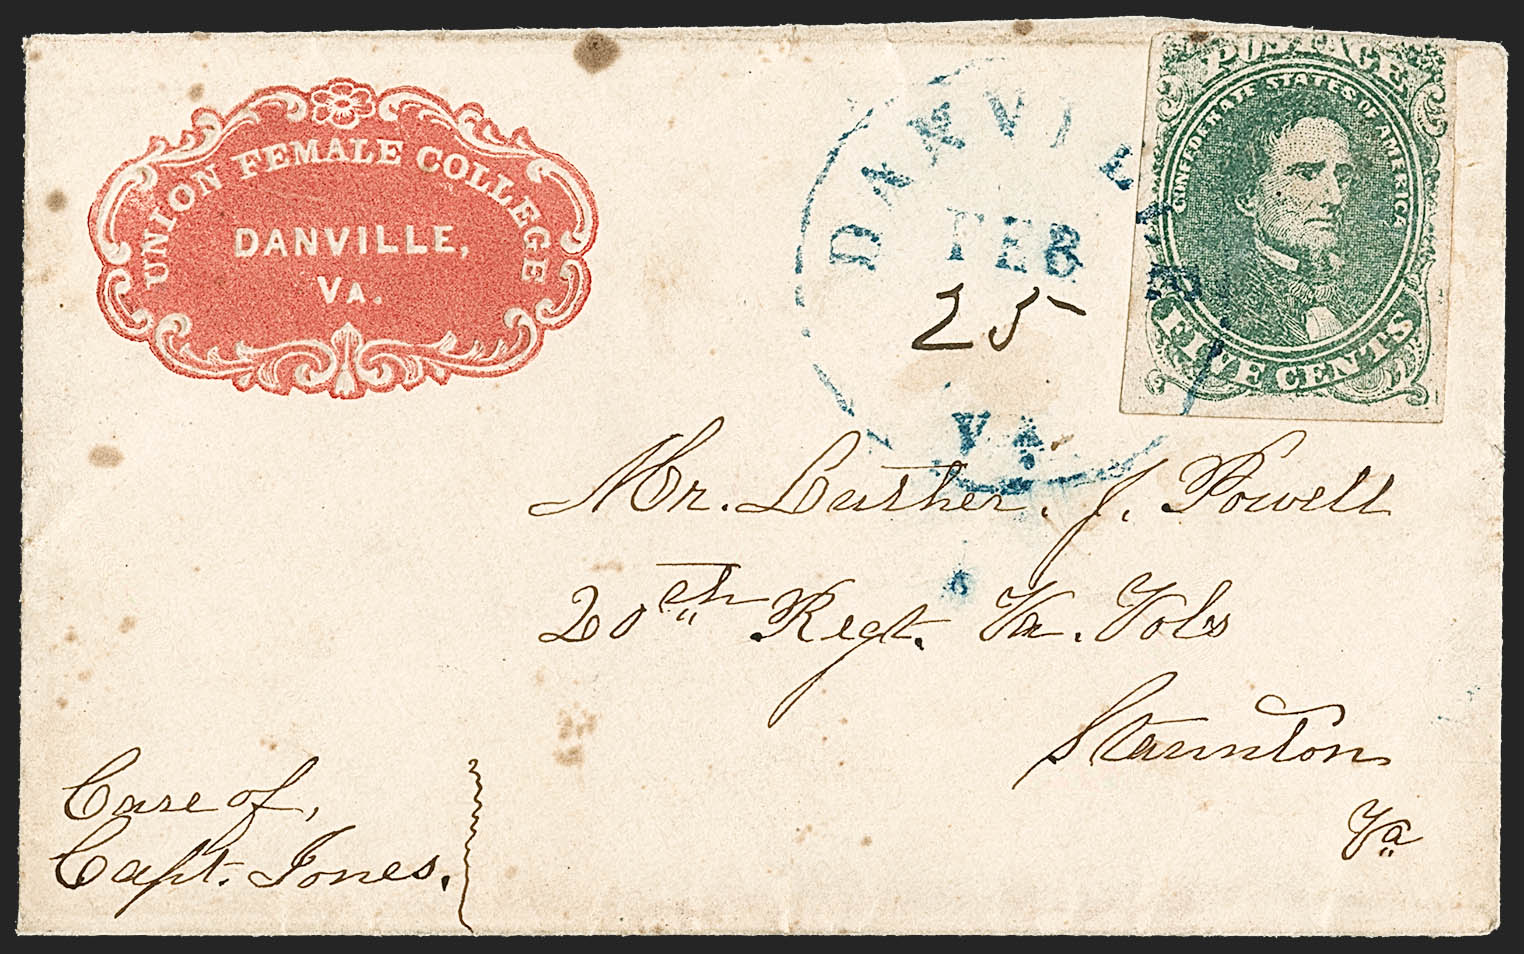 UNION FEMALE COLLEGE
DANVILLE,
VA.
DANVILLE
FEB
25
VA.
POSTAGE
CONFEDERATE STATES OF AMERICA
FIVE CENTS
Mr. Luther. J. Powell
20th Regt. Va. Vols
Staunton
Va
Care of,
Capt. Jones.